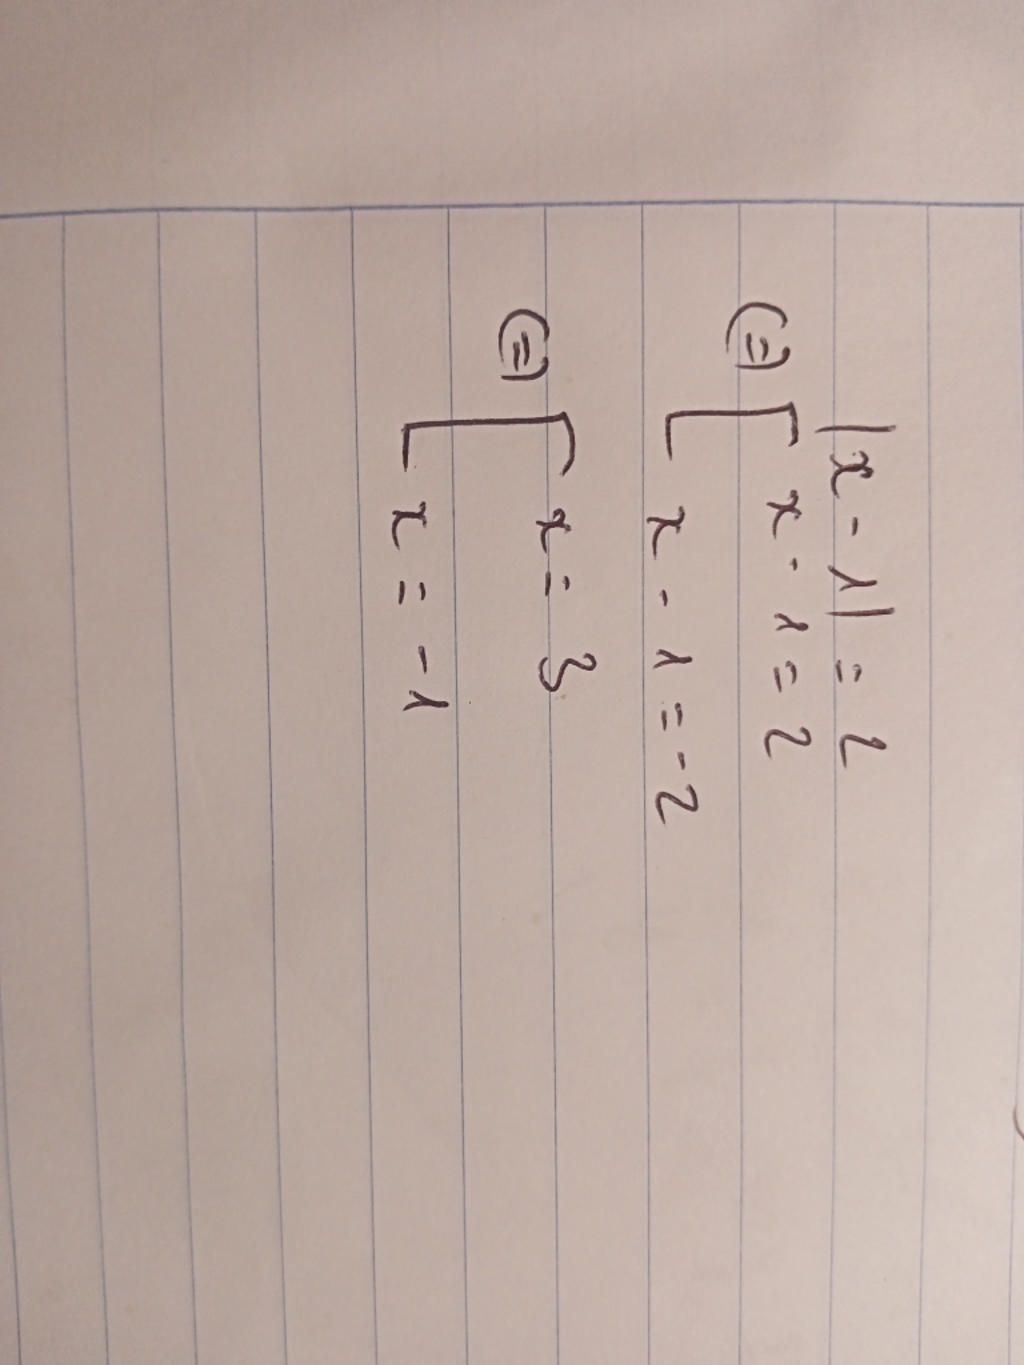 |x - 1| = 2
(=) [ x - 1 = 2
x - 1 = -2
(=) [ x = 3
x = -1